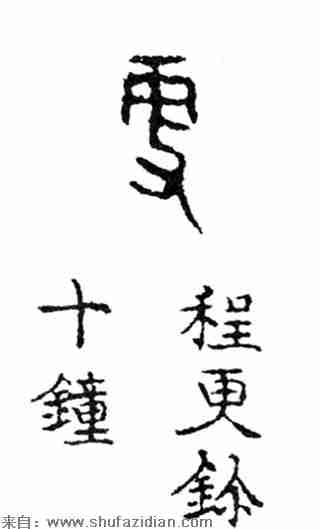 更
程更鉨
十鐘
来自：www.shufazidian.com